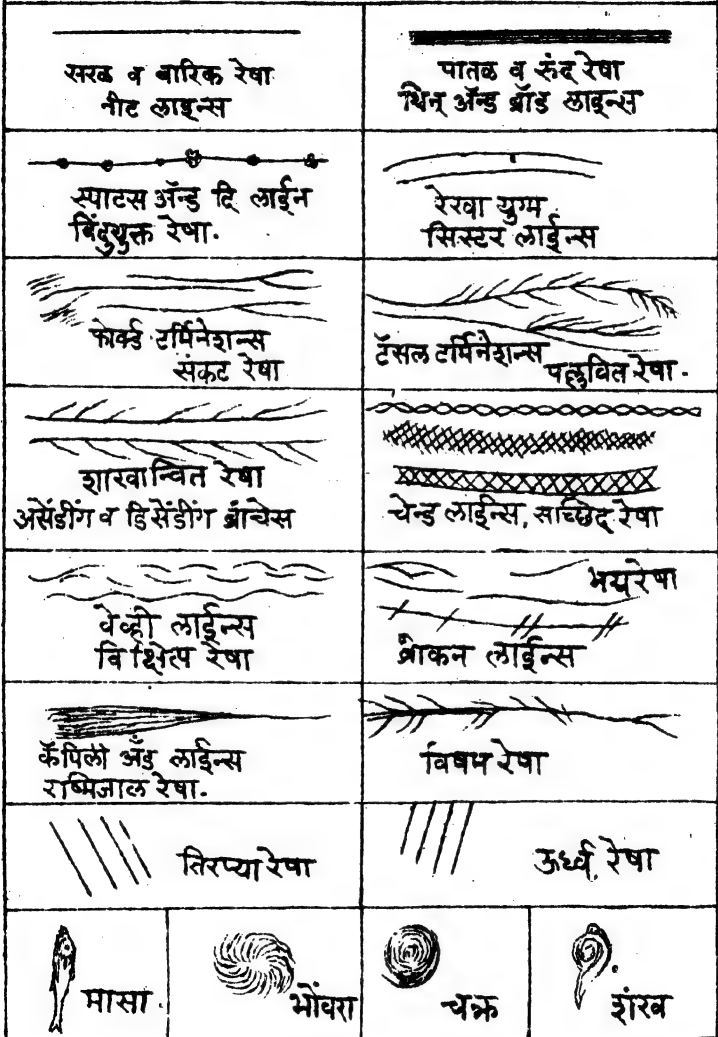 सरळ व बारिक रेषा
नीट लाइन्स
पातळ व रुंद रेषा
थिन् ॲन्ड ब्रॉड लाइन्स
स्पाटस ॲन्ड दि लाईन
बिंदुयुक्त रेषा.
रेखा युग्म
सिस्टर लाईन्स
फोर्क्ड टर्मिनेशन्स
संकट रेषा
टॅसल टर्मिनेशन्स
पल्लवित रेषा.
शाखान्वित रेषा
असेंडींग व डिसेंडींग ब्रांचेस
चेन्ड लाईन्स, सच्छिद्र रेषा
वेव्ही लाईन्स
विक्षिप्त रेषा
भग्नरेषा
ब्रोकन लाईन्स
कॅपिली अँड लाईन्स
राष्मिजाल रेषा.
विषम रेषा
तिरप्या रेषा
ऊर्ध्व, रेषा
मासा.
भोंवरा
चक्र
शंख